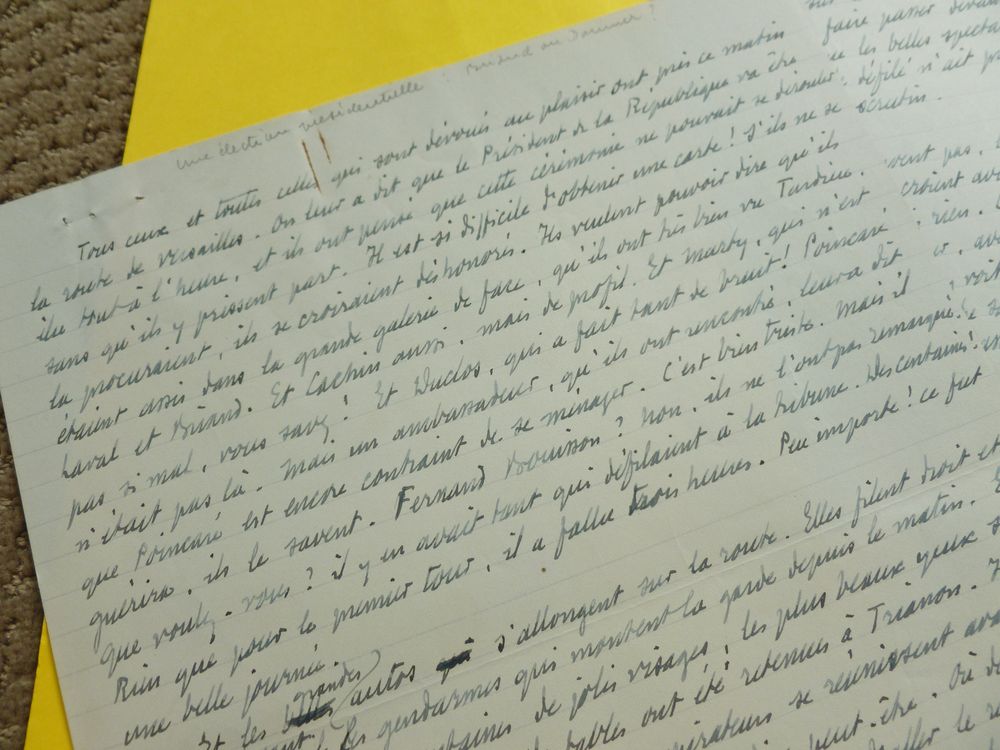 Une élection présidentielle : Briand ou Doumer ?
Tous ceux et toutes celles qui sont dévoués au plaisir ont pris ce matin
la route de Versailles. On leur a dit que le Président de la République va être
élu tout à l'heure, et ils ont pensé que cette cérémonie ne pouvait se dérouler,
sans qu'ils y prissent part. Il est si difficile d'obtenir une carte ! S'ils ne se
la procuraient, ils se croiraient déshonorés. Ils veulent pouvoir dire qu'ils
étaient assis dans la grande galerie de face, qu'ils ont très bien vu Tardieu,
Laval et Briand. Et Cachin aussi, mais de profil. Et Marty, qui n'est
pas si mal, vous savez ! Et Duclos, qui a fait tant de bruit ! Poincaré
n'était pas là. Mais un ambassadeur, qu'ils ont rencontré, leur a dit
que Poincaré est encore contraint de se ménager. C'est bien triste. Mais il
guérira, ils le savent. Fernand Bouisson ? Non, ils ne l'ont pas remarqué !
que voulez-vous ? il y en avait tant qui défilaient à la tribune. Des centaines !
Rien que pour le premier tour, il a fallu trois heures. Peu importe ! ce fut
une belle journée.
Et les grandes autos s'allongent sur la route. Elles filent droit et
les gendarmes qui montent la garde depuis le matin.
de jolis visages, les plus beaux yeux
tables ont été retenues à Trianon.
se réunissent
peut-être. Où
sur
faire passer devant
les belles
défilé n'ait
scrutin.
vent pas,
croient
rien.